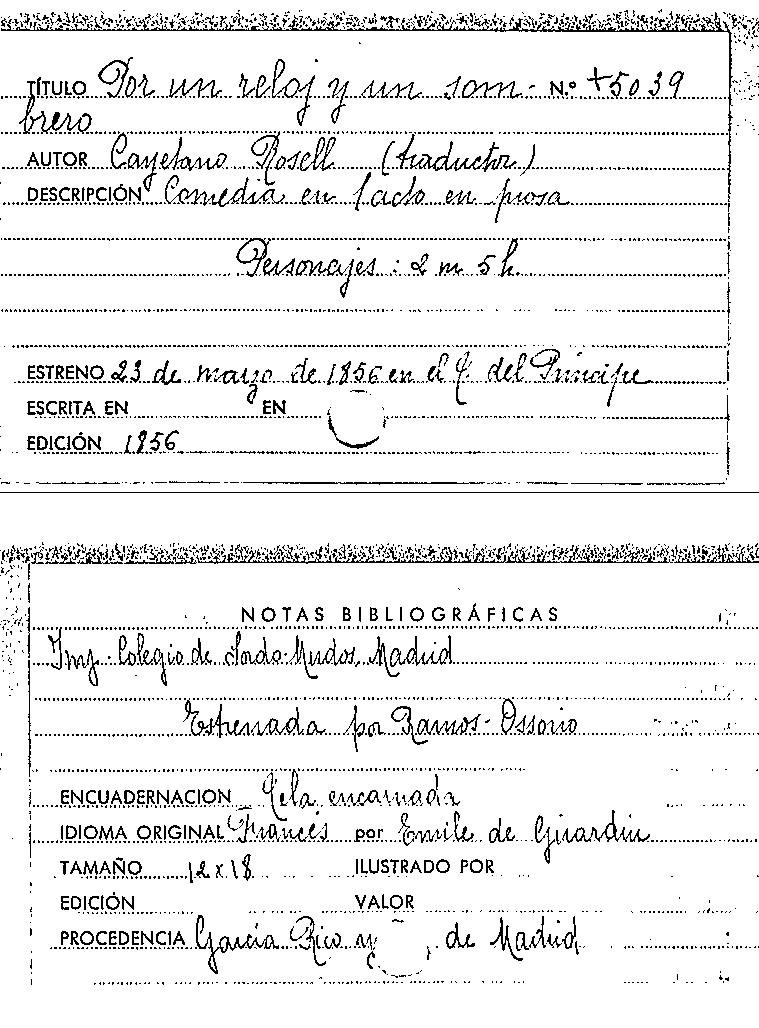 TÍTULO Por un reloj y un som- N.º +5039
brero
AUTOR Cayetano Rosell (traductor)
DESCRIPCIÓN Comedia en 1 acto en prosa
Personajes: 2 m 5 h.
ESTRENO 23 de marzo de 1856 en el T. del Príncipe
ESCRITA EN EN
EDICIÓN 1856
NOTAS BIBLIOGRÁFICAS
Imp. Colegio de Sordo-Mudos, Madrid
Estrenada por Ramos-Ossorio
ENCUADERNACION Tela encarnada
IDIOMA ORIGINAL Francés por Emile de Girardin
TAMAÑO 12 x 18 ILUSTRADO POR
EDICIÓN VALOR
PROCEDENCIA García Rico y de Madrid